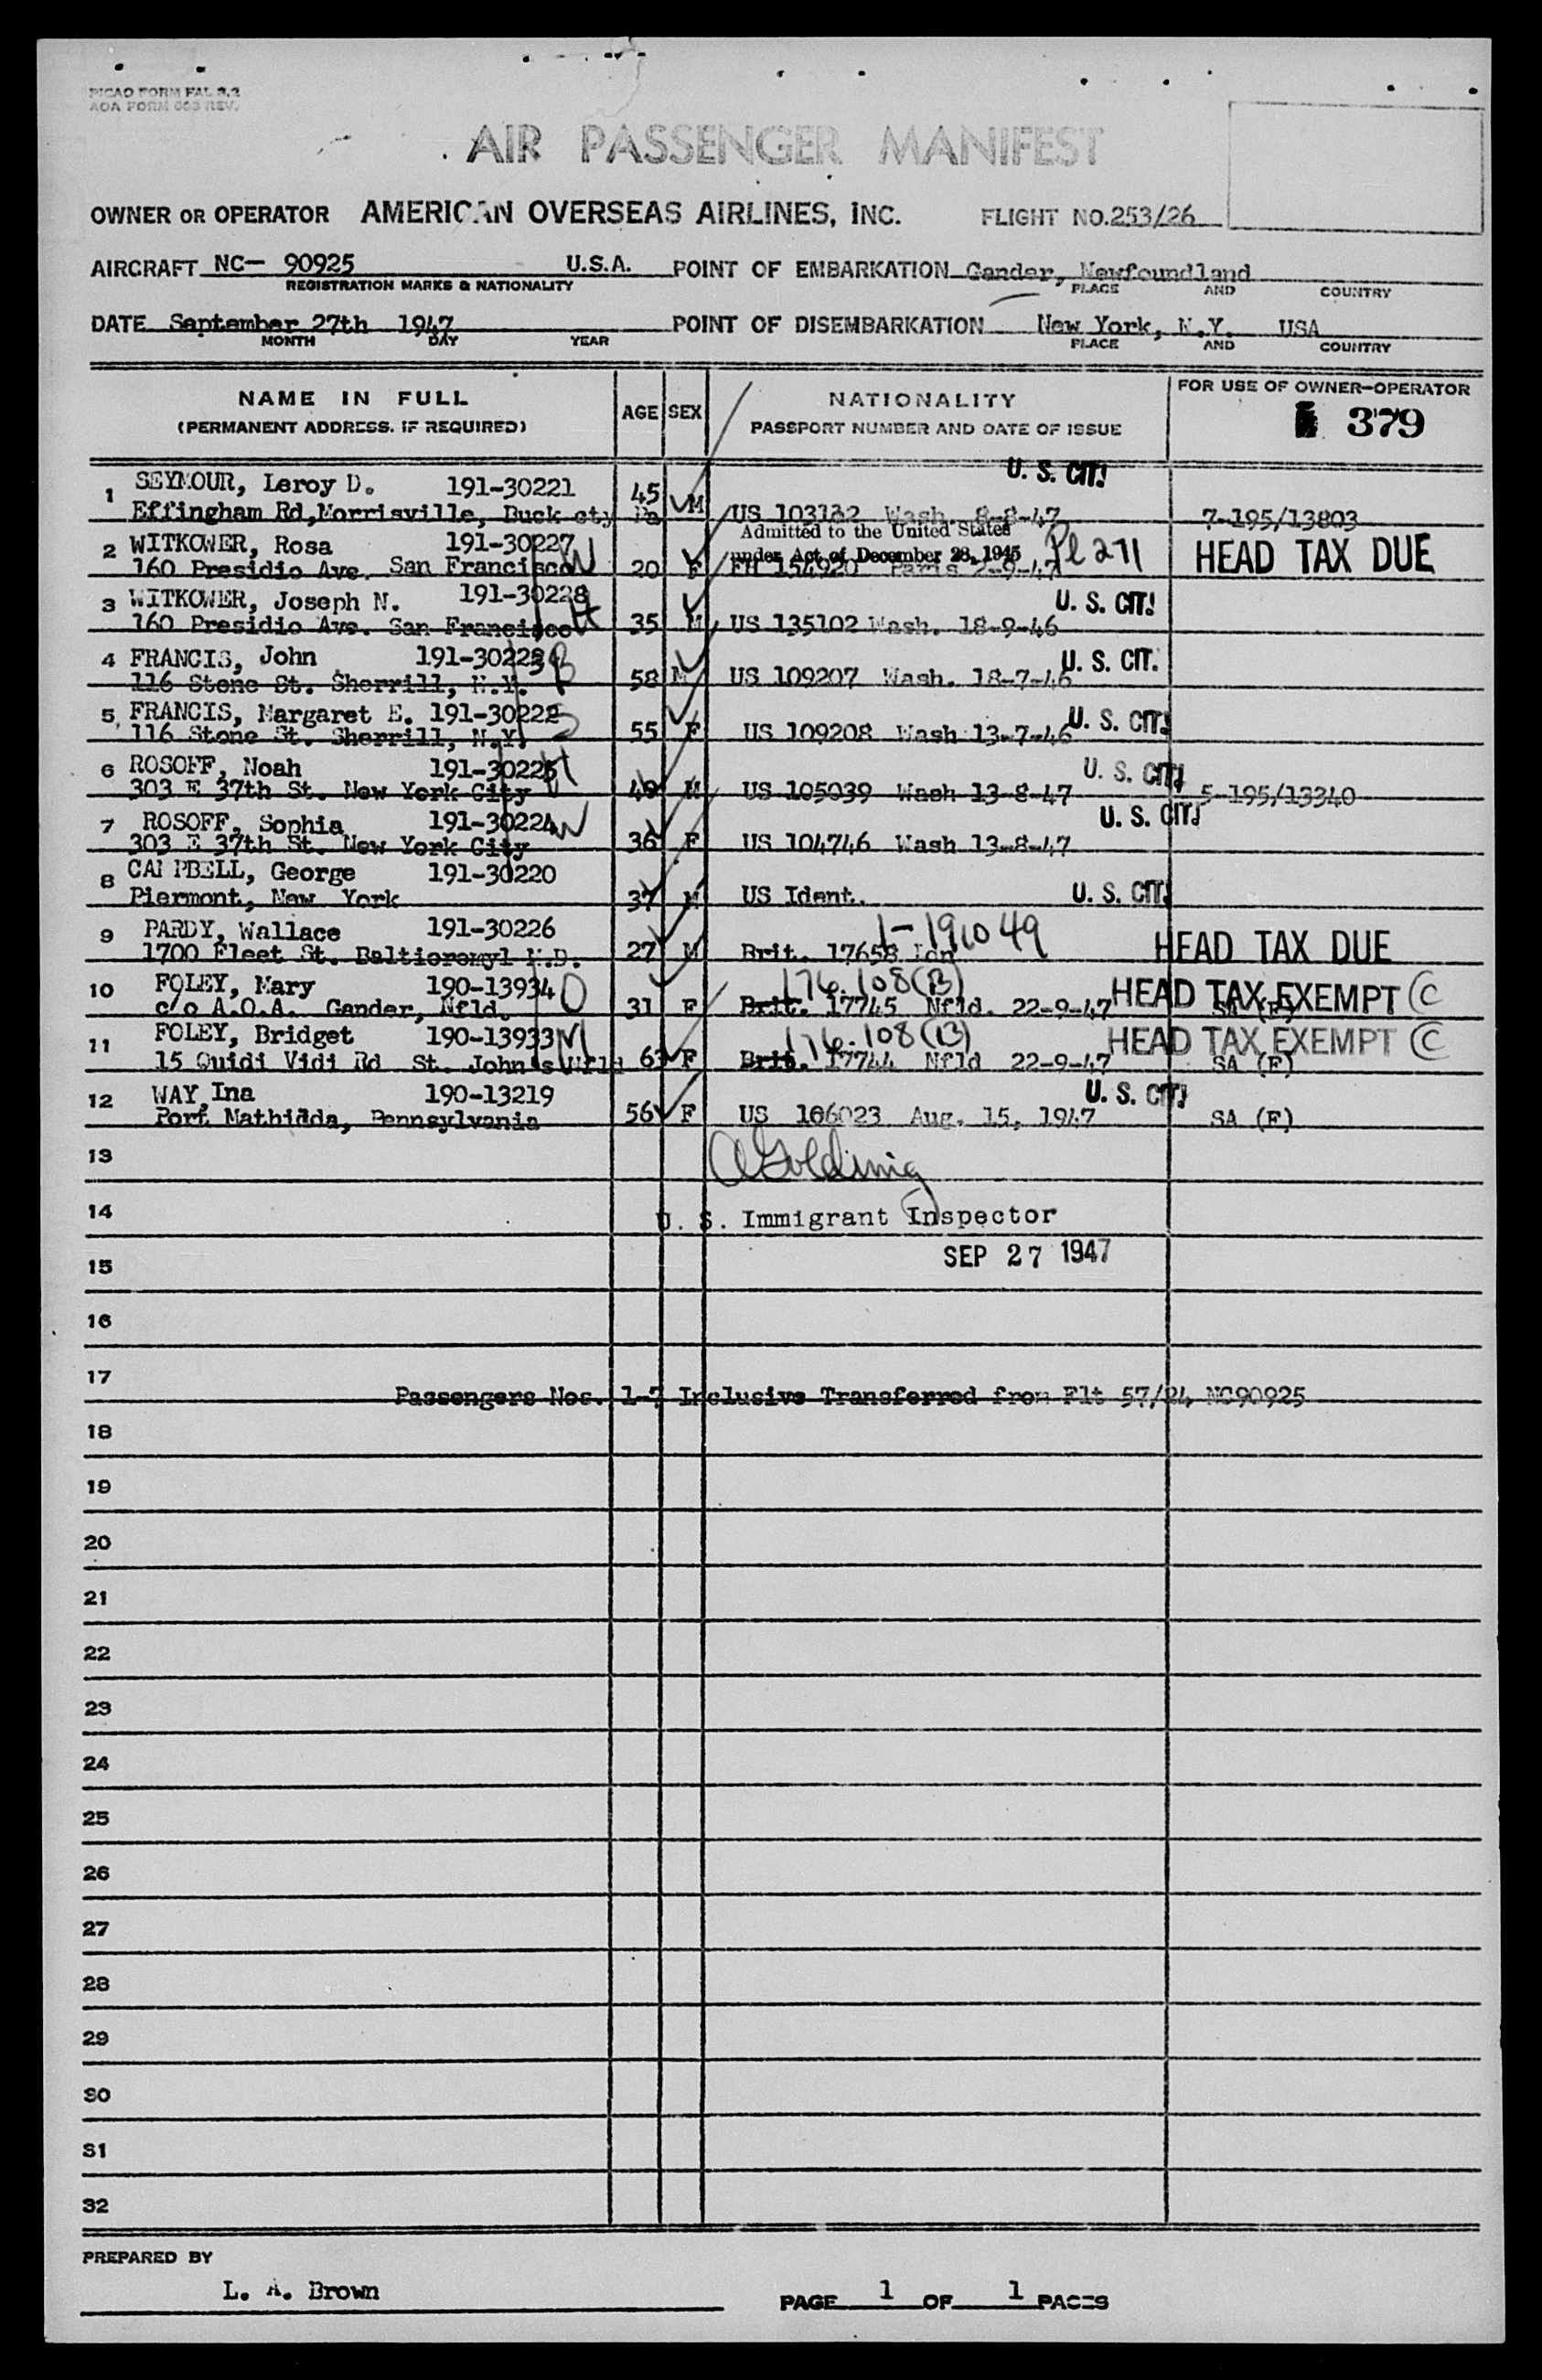 PICAO FORM FAL 3.2
AOA FORM 003 REV.
AIR PASSENGER MANIFEST
OWNER OR OPERATOR AMERICAN OVERSEAS AIRLINES, INC. FLIGHT NO. 253/26
AIRCRAFT NC— 90925 U.S.A. POINT OF EMBARKATION Gander, Newfoundland
REGISTRATION MARKS & NATIONALITY PLACE AND COUNTRY
DATE September 27th 1947 POINT OF DISEMBARKATION New York, N.Y. USA
MONTH DAY YEAR PLACE AND COUNTRY
NAME IN FULL AGE SEX NATIONALITY FOR USE OF OWNER-OPERATOR
(PERMANENT ADDRESS, IF REQUIRED) PASSPORT NUMBER AND DATE OF ISSUE 379
U. S. CIT.
1 SEYMOUR, Leroy D. 191-30221 45 M
Effingham Rd, Morrisville, Buck cty Pa US 103132 Wash. 8-8-47 7-195/13803
Admitted to the United States
2 WITKOWER, Rosa 191-30227 W under Act of December 28, 1945 Pl 271 HEAD TAX DUE
160 Presidio Ave. San Francisco 20 F 154920 Paris 2-9-47
3 WITKOWER, Joseph N. 191-30228 H U. S. CIT.
160 Presidio Ave. San Francisco 35 M US 135102 Wash. 18-9-46
4 FRANCIS, John U. S. CIT.
116 Stone St. Sherrill, N.Y. 58 M US 109207 Wash. 18-7-46
5 FRANCIS, Margaret E. 191-30222 U. S. CIT.
116 Stone St. Sherrill, N.Y. 55 F US 109208 Wash 13-7-46
6 ROSOFF, Noah 191-30225 H U. S. CIT.
303 E 37th St. New York City M US 105039 Wash 13-8-47 5-195/13340
7 ROSOFF, Sophia 191-30224 W U. S. CIT.
303 E 37th St. New York City 36 F US 104746 Wash 13-8-47
8 CAMPBELL, George 191-30220
Piermont, New York 37 M US Ident. U. S. CIT.
9 PARDY, Wallace 191-30226 HEAD TAX DUE
1700 Fleet St. 27 M Brit. 17658 Ldn
10 FOLEY, Mary 190-13934 176.108(B) HEAD TAX EXEMPT C
c/o A.O.A. Gander, Nfld. 31 F Brit. 17745 Nfld. 22-9-47 SA (F)
11 FOLEY, Bridget 190-13933 M 176.108(B) HEAD TAX EXEMPT C
15 Quidi Vidi Rd St. John's Nfld F Brit. 17744 Nfld 22-9-47 SA (F)
12 WAY, Ina 190-13219 U. S. CIT.
Port Mathidda, Pennsylvania 56 F US 106023 Aug. 15, 1947 SA (F)
13 Golding
14 U. S. Immigrant Inspector
15 SEP 27 1947
16
17
Passengers Nos. 1-7 Inclusive Transferred from Flt 57/24 NC90925
18
19
20
21
22
23
24
25
26
27
28
29
30
31
32
PREPARED BY
L. A. Brown
PAGE 1 OF 1 PAGES